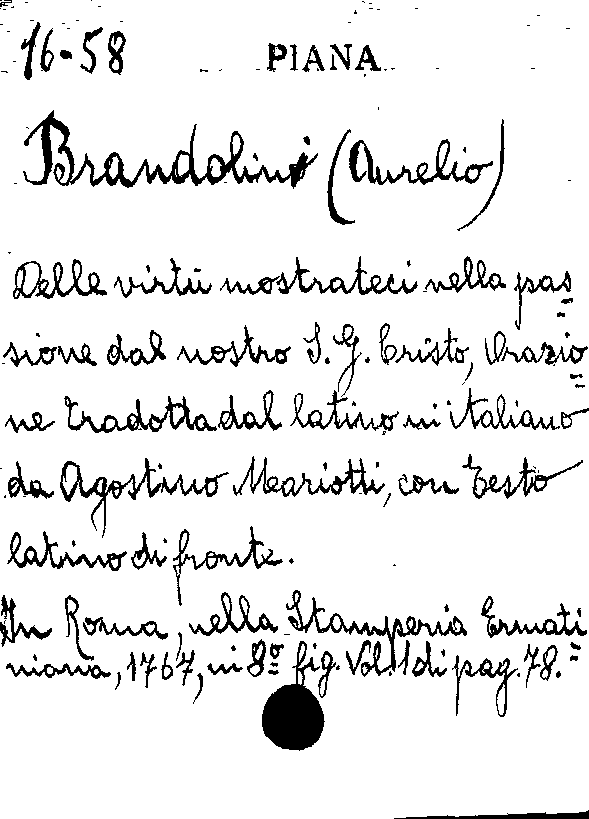 16-58 PIANA
Brandolini (Aurelio)
Delle virtù mostrateci nella pas=
sione dal nostro S. G. Cristo, Orazio=
ne tradotta dal latino in italiano
da Agostino Mariotti, con testo
latino di fronte.
In Roma, nella Stamperia Ermati=
niana, 1767, in 8º fig. Vol. 1 di pag. 78.